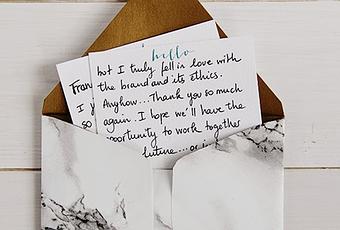 hello
but I truly fell in love with
the brand and its ethics.
Anyhow... Thank you so much
again. I hope we'll have the
opportunity to work together
future... or i
Fran
I
so